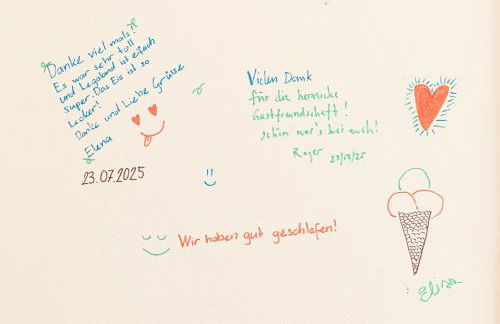 Danke viel mals!
Es war sehr toll
und Legoland ist eifach
super. Das Eis ist so
Lecker!
Danke und Liebe Grüsse
Elena
23.07.2025
Vielen Dank
für die herzliche
Gastfreundschaft!
schön war's bei euch!
Roger 23/07/25
Wir haben gut geschlafen!
Elisa